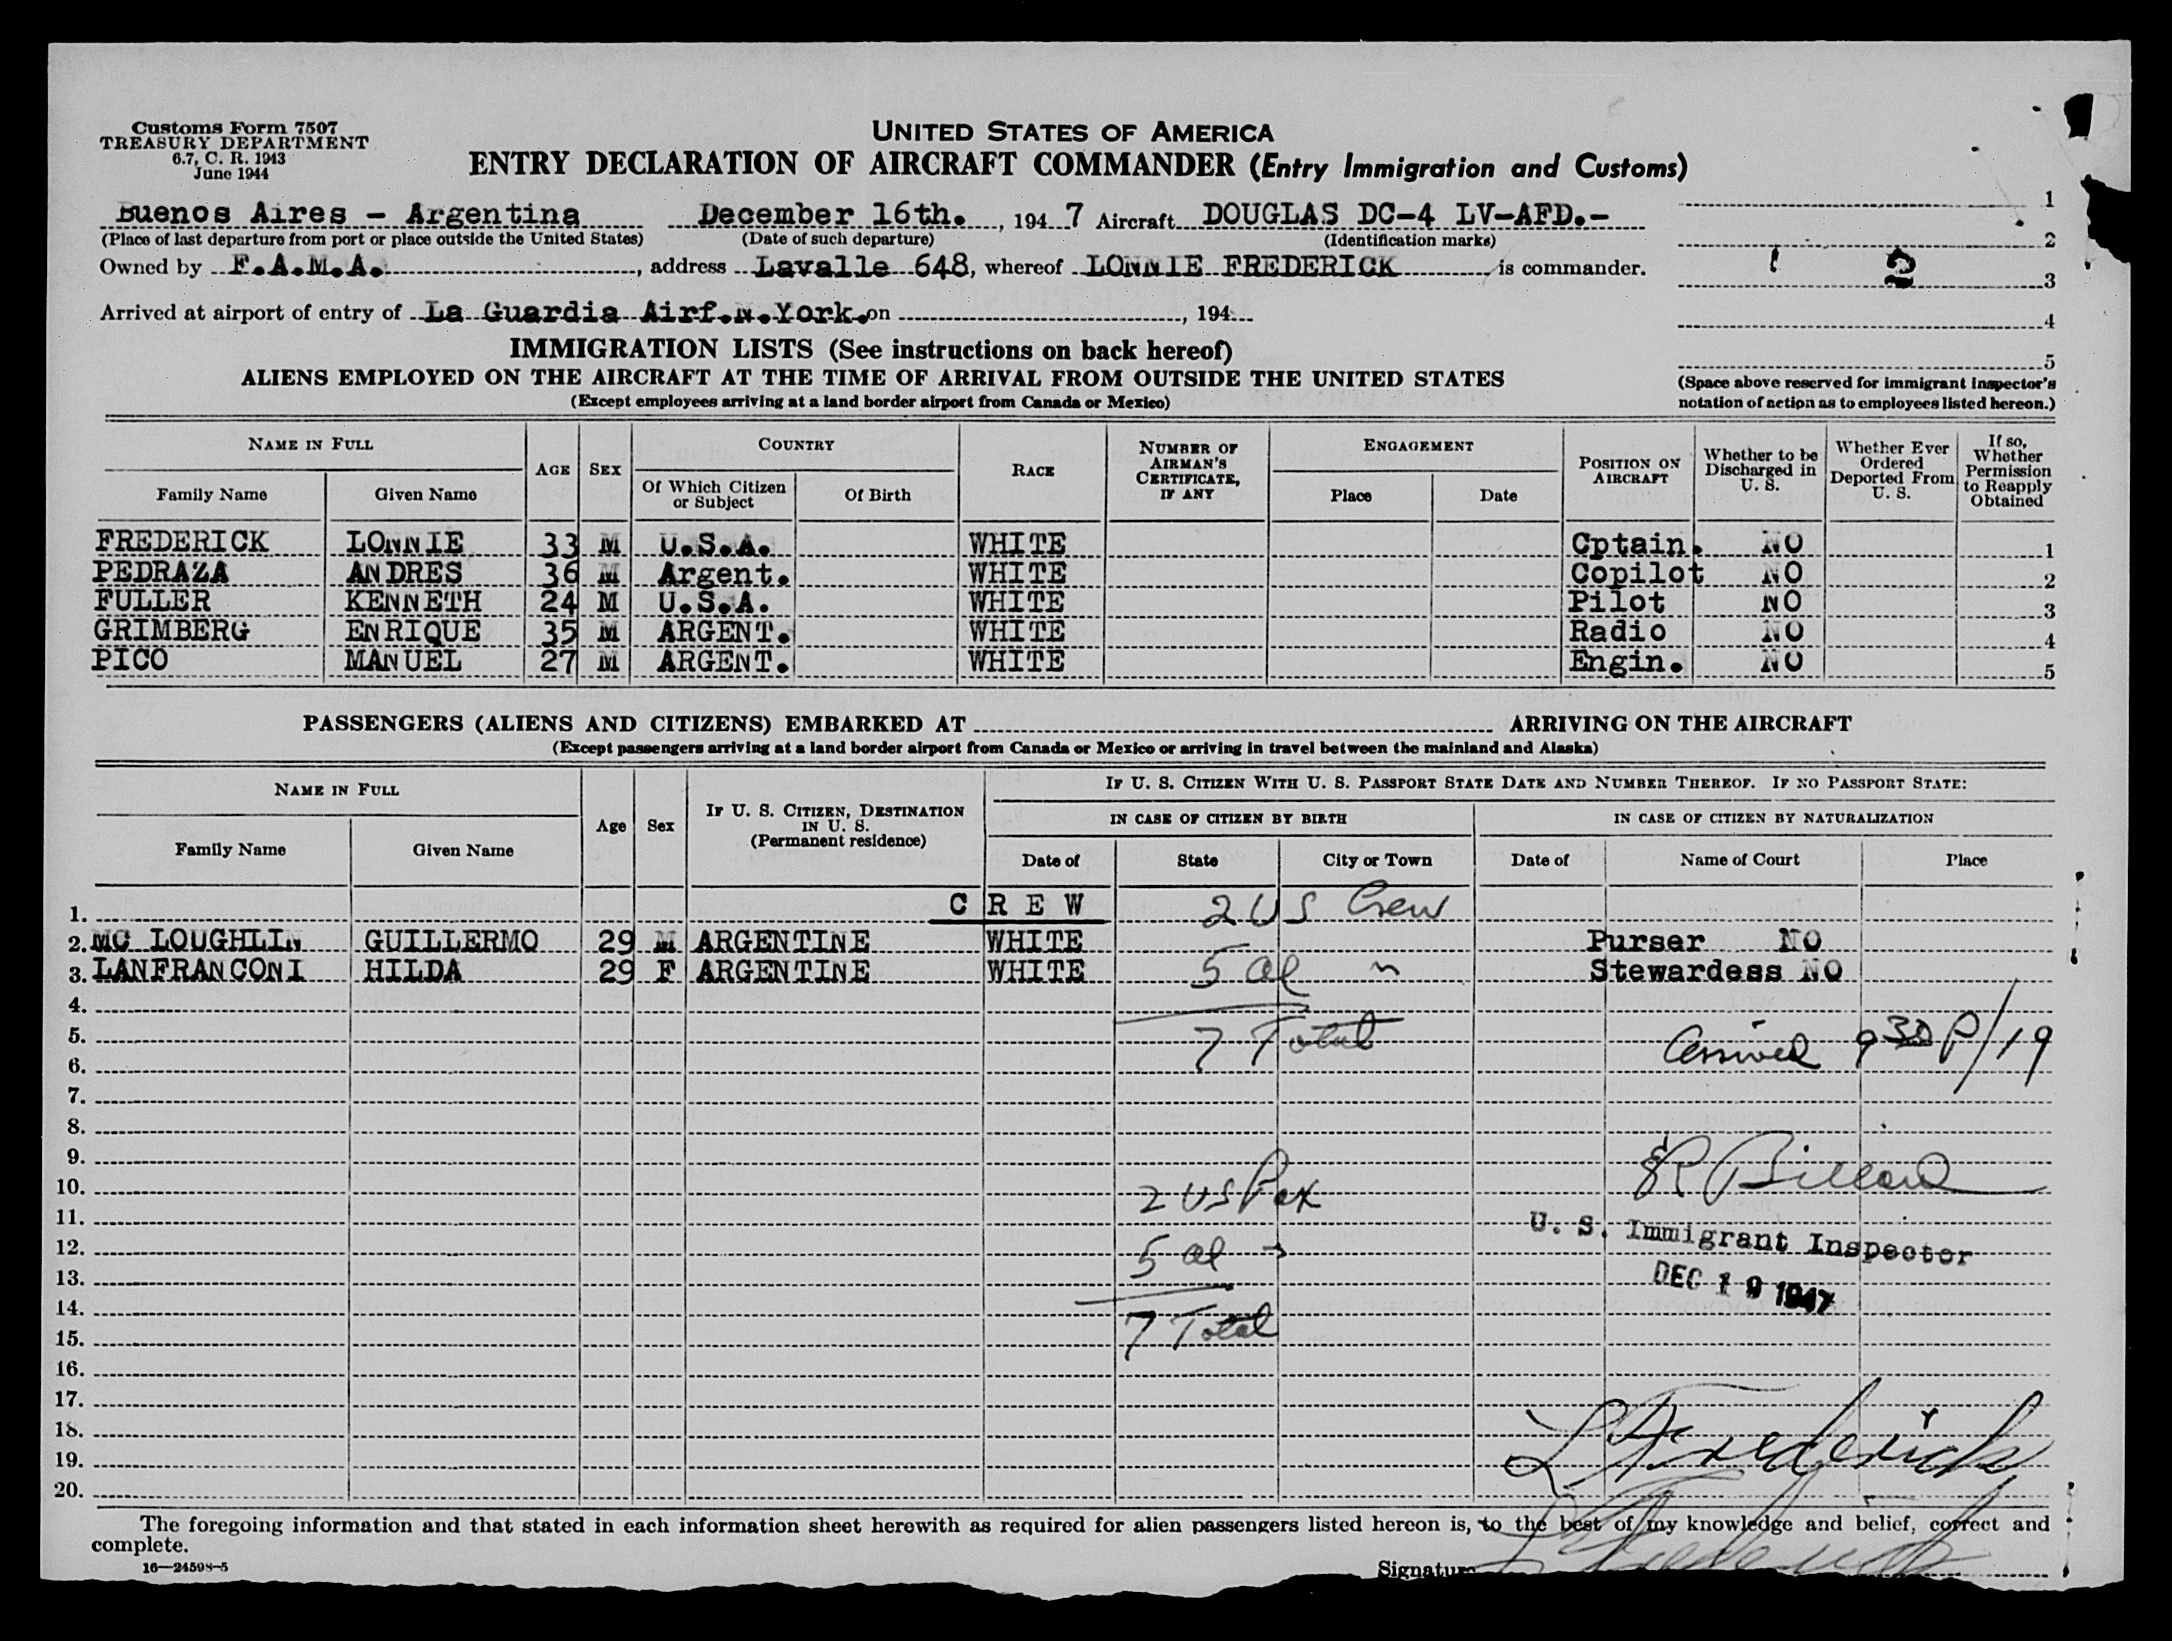 Customs Form 7507
TREASURY DEPARTMENT
6.7, C. R. 1943
June 1944
UNITED STATES OF AMERICA
ENTRY DECLARATION OF AIRCRAFT COMMANDER (Entry Immigration and Customs)
Buenos Aires - Argentina December 16th. , 194 7 Aircraft DOUGLAS DC-4 LV-AFD.-
(Place of last departure from port or place outside the United States) (Date of such departure) (Identification marks)
Owned by F.A.M.A. , address Lavalle 648, whereof LONNIE FREDERICK is commander.
Arrived at airport of entry of La Guardia Airf.N.York. on , 194
1
2
1 2 3
4
5
(Space above reserved for immigrant inspector's
notation of action as to employees listed hereon.)
IMMIGRATION LISTS (See instructions on back hereof)
ALIENS EMPLOYED ON THE AIRCRAFT AT THE TIME OF ARRIVAL FROM OUTSIDE THE UNITED STATES
(Except employees arriving at a land border airport from Canada or Mexico)
NAME IN FULL
Family Name Given Name
AGE SEX
COUNTRY
Of Which Citizen or Subject Of Birth
RACE
NUMBER OF AIRMAN'S CERTIFICATE, IF ANY
ENGAGEMENT
Place Date
POSITION ON AIRCRAFT
Whether to be Discharged in U. S.
Whether Ever Ordered Deported From U. S.
If so, Whether Permission to Reapply Obtained
FREDERICK LONNIE 33 M U.S.A. WHITE Cptain. NO 1
PEDRAZA ANDRES 36 M Argent. WHITE Copilot NO 2
FULLER KENNETH 24 M U.S.A. WHITE Pilot NO 3
GRIMBERG ENRIQUE 35 M ARGENT. WHITE Radio NO 4
PICO MANUEL 27 M ARGENT. WHITE Engin. NO 5
PASSENGERS (ALIENS AND CITIZENS) EMBARKED AT ARRIVING ON THE AIRCRAFT
(Except passengers arriving at a land border airport from Canada or Mexico or arriving in travel between the mainland and Alaska)
NAME IN FULL
Family Name Given Name
Age Sex
IF U. S. CITIZEN, DESTINATION IN U. S.
(Permanent residence)
IF U. S. CITIZEN WITH U. S. PASSPORT STATE DATE AND NUMBER THEREOF. IF NO PASSPORT STATE:
IN CASE OF CITIZEN BY BIRTH IN CASE OF CITIZEN BY NATURALIZATION
Date of State City or Town Date of Name of Court Place
1. C R E W 2 US Crew
2. MC LOUGHLIN GUILLERMO 29 M ARGENTINE WHITE Purser NO
3. LANFRANCONI HILDA 29 F ARGENTINE WHITE 5 al " Stewardess NO
4.
5. 7 Total Arrived 9 30 P/19
6.
7.
8.
9. Billard
10. 2 US Pax
11. U. S. Immigrant Inspector
12. 5 al
13. DEC 19 1947
14.
15. 7 Total
16.
17.
18. L Frederick
19.
20.
The foregoing information and that stated in each information sheet herewith as required for alien passengers listed hereon is, to the best of my knowledge and belief, correct and
complete.
16—24598-5
Signature L Frederick